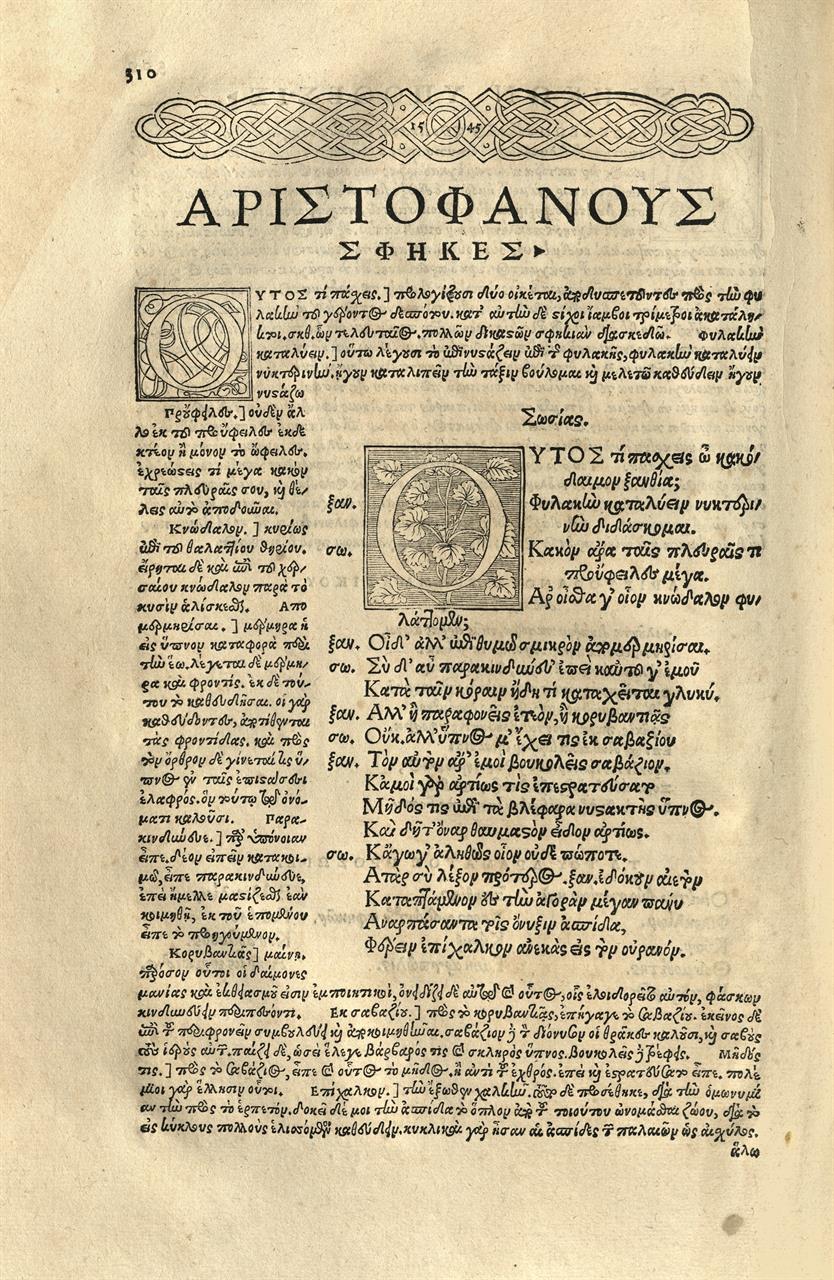 310
15 45
ΑΡΙΣΤΟΦΑΝΟΥΣ
ΣΦΗΚΕΣ
ΟΥΤΟΣ τί πάχεις.] προλογίζουσι δύο οἰκέται, πρὸς τὴν φυ
λακὴν τοῦ γέροντος δεσπότου. κατ' αὐτῶν δὲ στίχοι ἴαμβοι τρίμετροι ἀκατάλη-
κτοι. ὧν τελευταῖος. πολλῶν δικαστῶν σφηκιὰν διασκεδῶ. Φυλακὴν
καταλύειν.] οὕτω λέγουσι τὸ ἐπινυστάζειν ἐπὶ τῆς φυλακῆς, φυλακὴν καταλύειν
νυκτερινήν. ἤγουν καταλιπεῖν τὴν τάξιν βούλομαι καὶ μελετῶ καθεύδειν ἤγουν
νυστάζω
Προὔφειλες.] οὐδὲν ἄλ
λο ἐκ τοῦ προὔφειλες ἐκδε
κτέον ἢ μόνον τὸ ὤφειλες.
ἐχρεώστεις τί μέγα κακὸν
ταῖς πλευραῖς σου, καὶ θέ-
λεις αὐτὸ ἀποδοῦναι.
Κνώδαλον.] κυρίως
ἐπὶ τοῦ θαλαττίου θηρίου.
εἴρηται δὲ καὶ ἐπὶ τοῦ χερ-
σαίου κνώδαλον παρὰ τὸ
κυσὶν ἁλίσκεσθαι. Απο
μερμηρίσαι.] μέρμηρα ἡ
εἰς ὕπνον καταφορὰ περὶ
τὴν ἕω. λέγεται δὲ μέρμη-
ρα καὶ φροντίς. ἐκ δὲ τού-
του τὸ καθευδῆσαι. οἱ γὰρ
καθεύδοντες, ἀποτίθενται
τὰς φροντίδας. καὶ πρὸς
τὸν ὄρθρον δὲ γίνεταί τις ὕ-
πνος ἐν ταῖς ἐπιστάσεσι
ἐλαφρός. ὃν τῷ ὀνό-
ματι καλοῦσι. Παρα-
κινδύνευε.] παρ' ὑπόνοιαν
εἶπε. δέον εἰπεῖν κατακοι-
μῶ, εἶπε παρακινδύνευε,
ἐπεὶ ἤμελλε μαστίζεσθαι ἐὰν
κοιμηθῇ, ἐκ τοῦ ἑπομένου
εἶπε τὸ προηγούμενον.
Κορυβαντιᾷς] μαίνῃ.
παρόσον οὗτοι οἱ δαίμονες
Σωσίας.
ΟΥΤΟΣ τί πάσχεις ὦ κακό-
δαιμον ξανθία;
ξαν. Φυλακὴν καταλύειν νυκτερι-
νὴν διδάσκομαι.
σω. Κακὸν ἄρα ταῖς πλευραῖς τι
προὔφειλες μέγα.
Αρ οἶσθα γ' οἷον κνώδαλον φυ-
λάττομεν;
ξαν. Οἶδ' ἀλλ' ἐπιθυμῶ σμικρὸν ἀπομερμηρίσαι.
σω. Σὺ δ' αὖ παρακινδύνευ' ἐπεὶ καὐτοῦ γ' ἐμοῦ
Κατὰ ταῖν κόραιν ἤδη τι καταχεῖται γλυκύ.
ξαν. Αλλ' ἦ παραφρονεῖς ἐτεὸν, ἢ κορυβαντιᾷς
σω. Οὔκ. ἀλλ' ὕπνος μ' ἔχει τις ἐκ σαβαζίου
ξαν. Τὸν αὐτὸν ἄρ' ἐμοὶ βουκολεῖς σαβάζιον.
Κἀμοὶ γὰρ ἀρτίως τὶς ἐπεστρατεύσατο
Μῆδός τις ἐπὶ τὰ βλέφαρα νυστακτὴς ὕπνος.
Καὶ δῆτ' ὄναρ θαυμαστὸν εἶδον ἀρτίως.
σω. Κἄγωγ' ἀληθῶς οἷον οὐδὲ πώποτε.
Ατὰρ σὺ λέξον πρότερος. ξαν. ἐδόκουν ἀετὸν
Καταπτάμενον ἐς τὴν ἀγορὰν μέγαν πάνυ
Αναρπάσαντα τοῖς ὄνυξιν ἀσπίδα,
Φέρειν ἐπίχαλκον ἀνεκὰς εἰς τὸν οὐρανόν.
μανίας καὶ ἐκθεασμοῦ εἰσιν ἐμποιητικοὶ, ὀνειδίζει δὲ αὐτὸν καὶ οὗτος, οἷς ἐλοιδορεῖτο αὐτὸν, φάσκων
Εκ σαβαζίου.] πρὸς τὸ κορυβαντιᾷς, ἐπήγαγε τὸ σαβαζίου. ἐκεῖνος δὲ
ἐπὶ τῷ συμβουλεύει καὶ ἀποκοιμηθῆναι. σαβάζιον δὲ τὸν διόνυσον οἱ θρᾷκες καλοῦσι, καὶ σαβοὺς
τοὺς ἱεροὺς αὐτοῦ. παίζει δὲ, ὡσεὶ ἔλεγε βάρβαρός τις καὶ σκληρὸς ὕπνος. Βουκολεῖς δὲ τρέφεις. Μῆδός
τις.] πρὸς τὸ σαβάζιος, εἶπε καὶ οὗτος τὸ μῆδος. ἢ ἀντὶ τοῦ ἐχθρός. ἐπεὶ καὶ ἐστρατεύσατο εἶπε. πολέ-
μιοι γὰρ ἕλλησιν οὗτοι. Επίχαλκον.] τὴν ἔξωθεν χαλκῆν. τοῦτο δὲ προσέθηκε, διὰ τὴν ὁμωνυμί
αν τὴν πρὸς τὸ ἑρπετόν. δοκεῖ δέ μοι τὴν ἀσπίδα τὸ ὅπλον ἀπὸ τοῦ τοιούτου ὠνομάσθαι ζώου, διὰ τὸ
εἰς κύκλους πολλοὺς ἑλισσόμενον καθεύδειν. κυκλικαὶ γὰρ ἦσαν αἱ ἀσπίδες τῶν παλαιῶν ὡς αἰσχύλος.
ἅλω